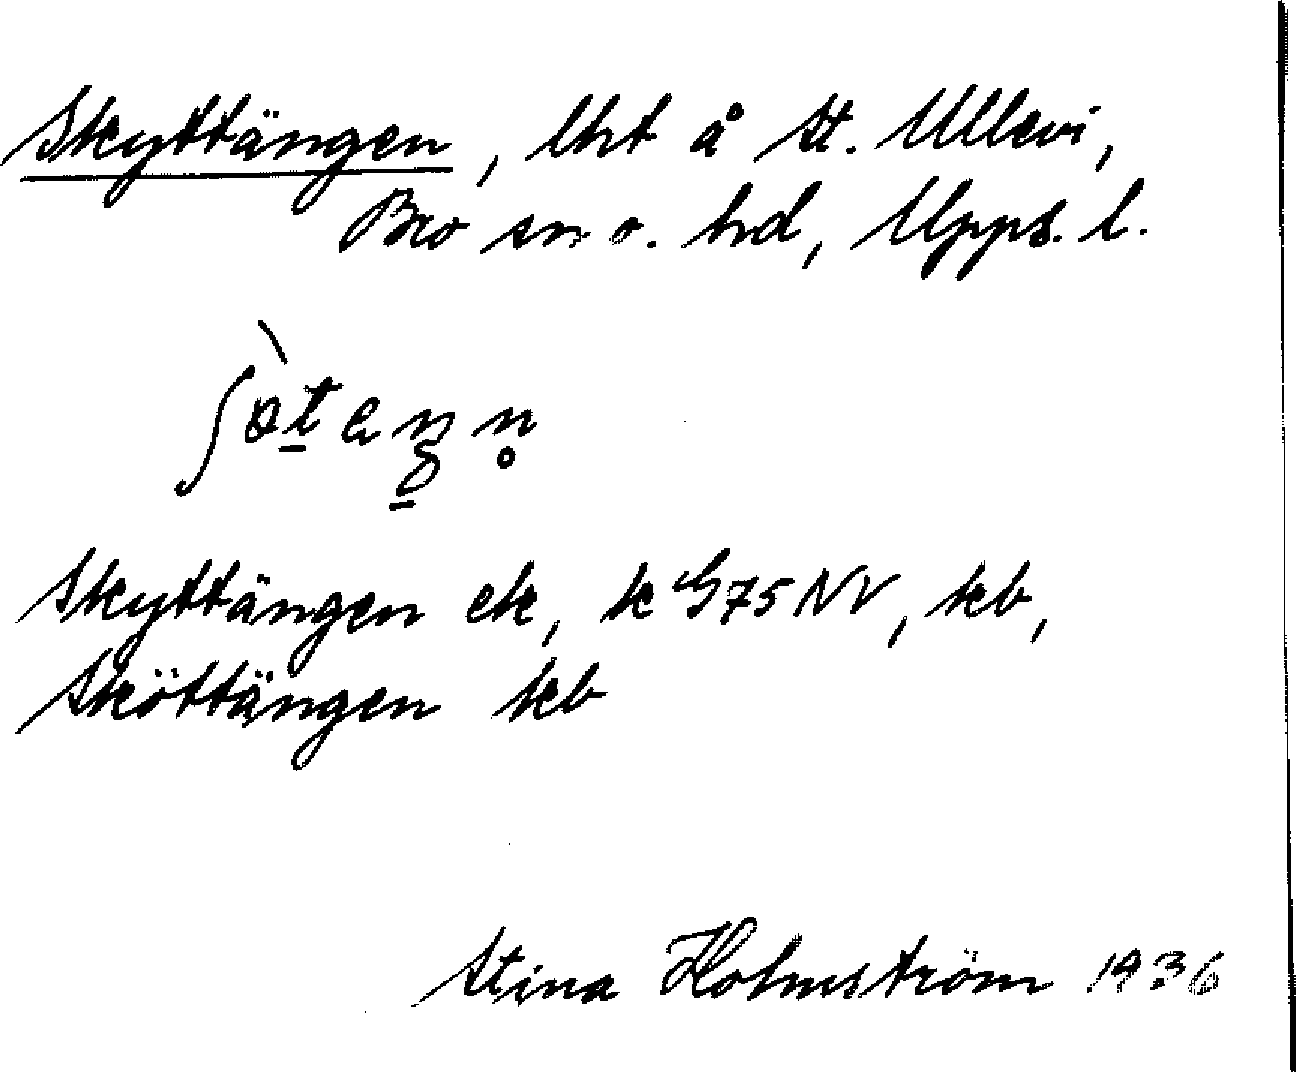 Skyttängen, lht å St. Ullevi,
Bro sn o. hd, Upps. l.
Skyttängen ek, k G75 NV, kb,
Sköttängen kb
Stina Holmström 1936